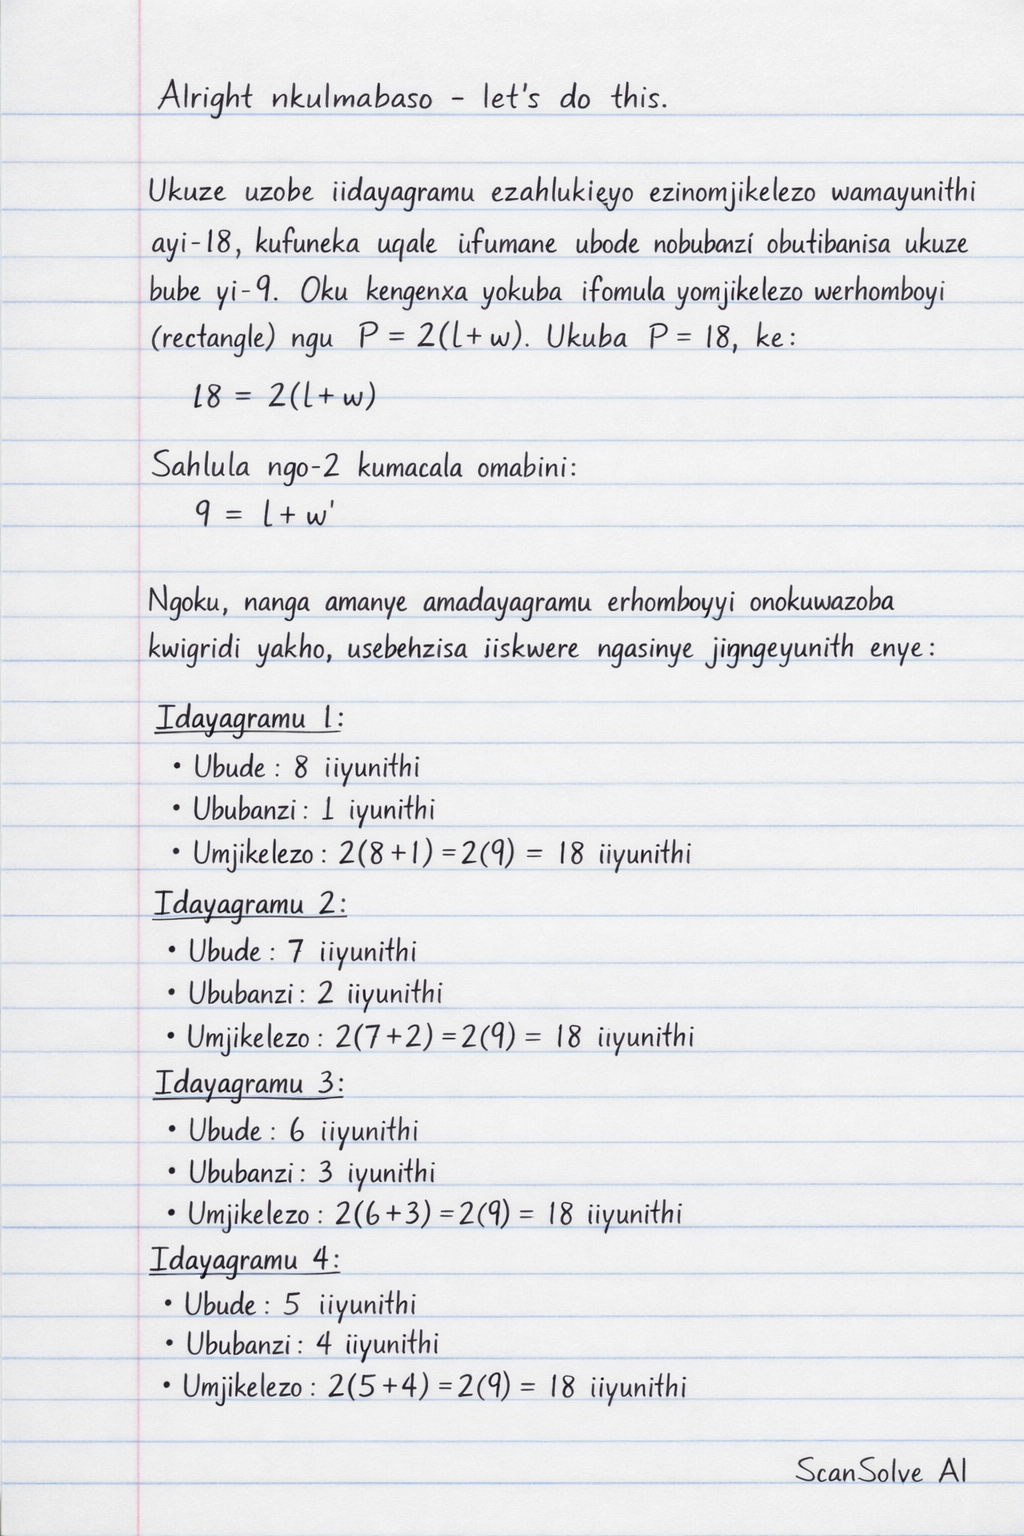 Alright nkulmabaso - let's do this.
Ukuze uzobe iidayagramu ezahlukięyo ezinomjikelezo wamayunithi
ayi-18, kufuneka uqale iifumane ubode nobubanzí obutibanisa ukuze
bube yi-9. Oku kengenxa yokuba ifomula yomjikelezo werhomboyi
(rectangle) ngu P = 2(l+w). Ukuba P = 18, ke:
18 = 2(l+w)
Sahlula ngo-2 kumacala omabini:
9 = l+w'
Ngoku, nanga amanye amadayagramu erhomboyyi onokuwazoba
kwigridi yakho, usebehzisa iiskwere ngasinye jigngeyunith enye:
Idayagramu 1:
• Ubude: 8 iiyunithi
• Ububanzi: 1 iyunithi
• Umjikelezo: 2(8+1) =2(9) = 18 iiyunithi
Idayagramu 2:
• Ubude: 7 iiyunithi
• Ububanzi: 2 iiyunithi
• Umjikelezo: 2(7+2) =2(9) = 18 iiyunithi
Idayagramu 3:
• Ubude: 6 iiyunithi
• Ububanzi: 3 iyunithi
• Umjikelezo: 2(6+3) =2(9) = 18 iiyunithi
Idayagramu 4:
• Ubude: 5 iiyunithi
• Ububanzi: 4 iiyunithi
• Umjikelezo: 2(5+4) =2(9) = 18 iiyunithi
ScanSolve AI